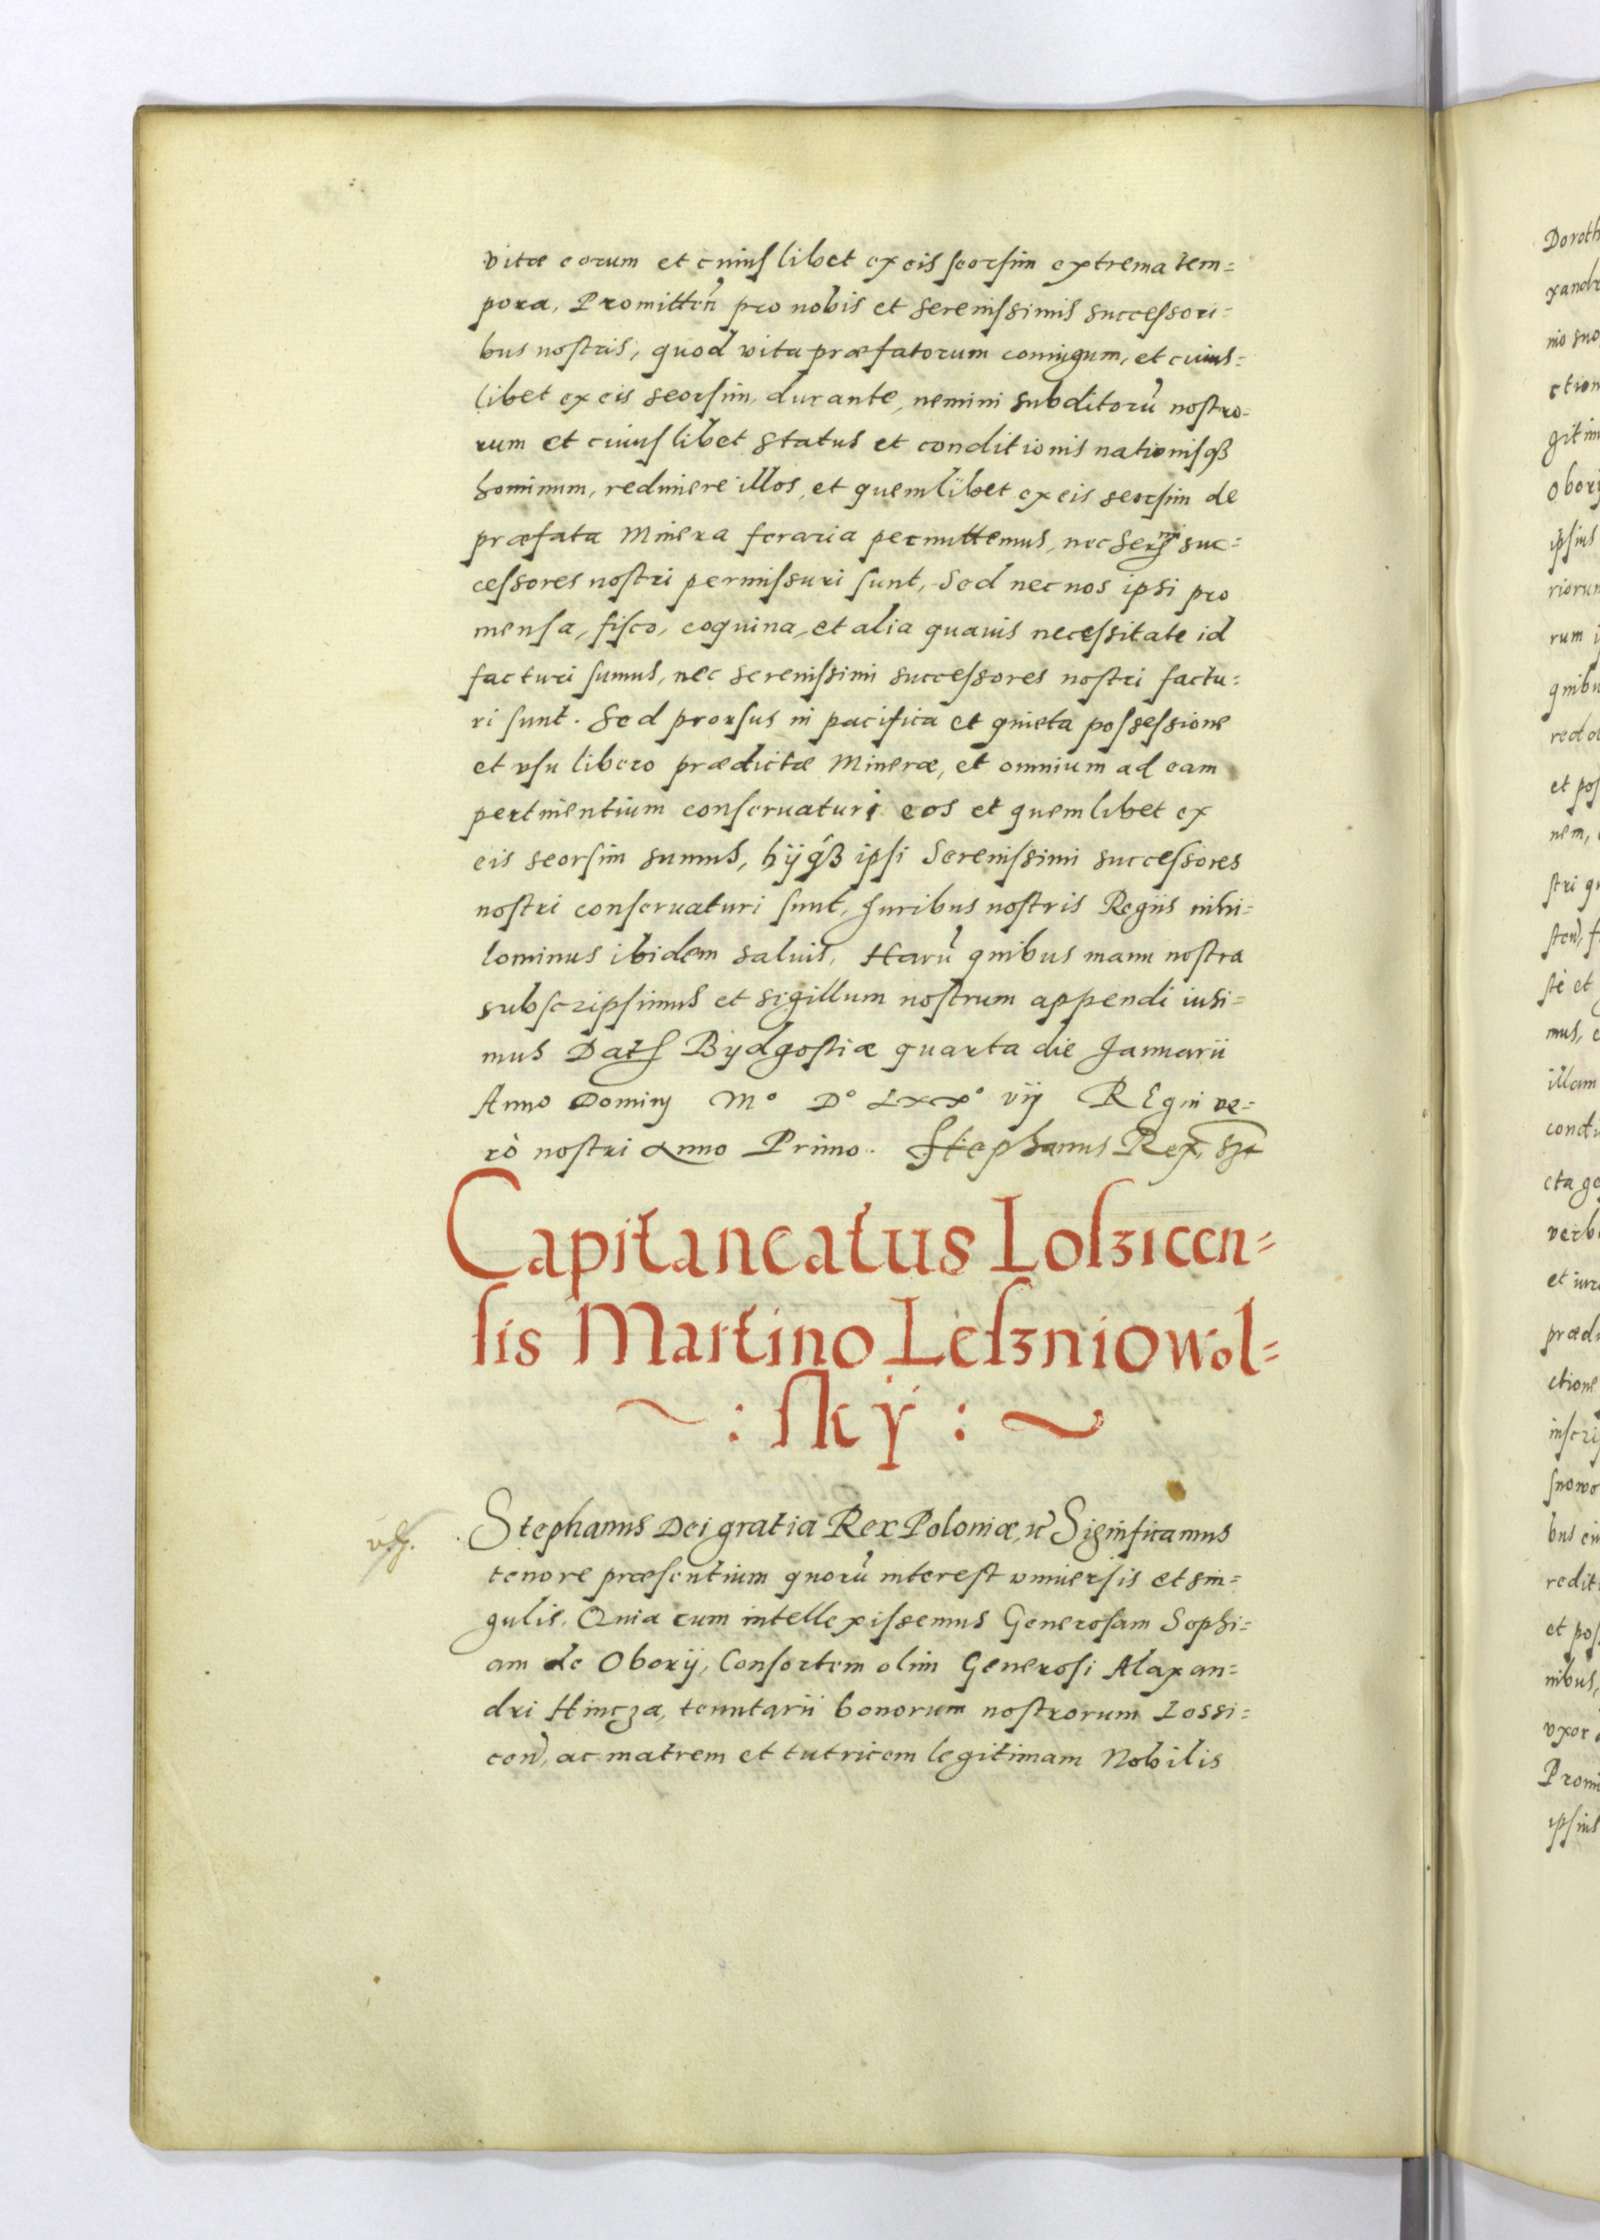 vitæ eorum et cuiuslibet ex eis seorsim extrema tem=
pora. Promitteñ pro nobis et serenissimis successori=
bus nostris, quod vita præfatorum coniugum, et cuius=
libet ex eis seorsim, durante, nemini subditorū nostro=
rum et cuiuslibet status et conditionis nationisqꝫ
hominum, redimere illos, et quemlibet ex eis seorsim de
præfata Minera feraria permittemus, nec Sermi suc=
cessores nostri permissuri sunt, Sed nec nos ipsi pro
mensa, fisco, coquina, et alia quauis necessitate id
facturi sumus, nec serenissimi successores nostri factu=
ri sunt. Sed prorsus in pacifica et quieta possessione
et vsu libero prædictæ Mineræ, et omnium ad eam
pertinentium conseruaturi eos et quemlibet ex
eis seorsim sumus, hijqꝫ ipsi Serenissimi successores
nostri conseruaturi sunt, Juribus nostris Regiis nihi=
lominus ibidem saluis, Harū quibus manu nostra
subscripsimus et sigillum nostrum appendi iusi=
mus Dat Bydgostiæ quarta die Januarii
Anno Dominj Mᵒ Dᵒ Lxxᵒ vij REgni ve=
rò nostri Anno Primo. Stephanus Rex, sst
Capitaneatus Losʒicen=
sis Martino Lesʒniowol=
~ : skÿ : ~
Stephanus Dei gratia Rex Poloniæ, ⁊c̃ Significamus
tenore præsentium quorū interest vniuersis et sin=
gulis, Quia cum intellexissemus Generosam Sophi=
am de Oborij, Consortem olim Generosi Alaxan=
dri Hincza, tenutarii bonorum nostrorum Lossi=
ceñ, ac matrem et tutricem legitimam Nobilis